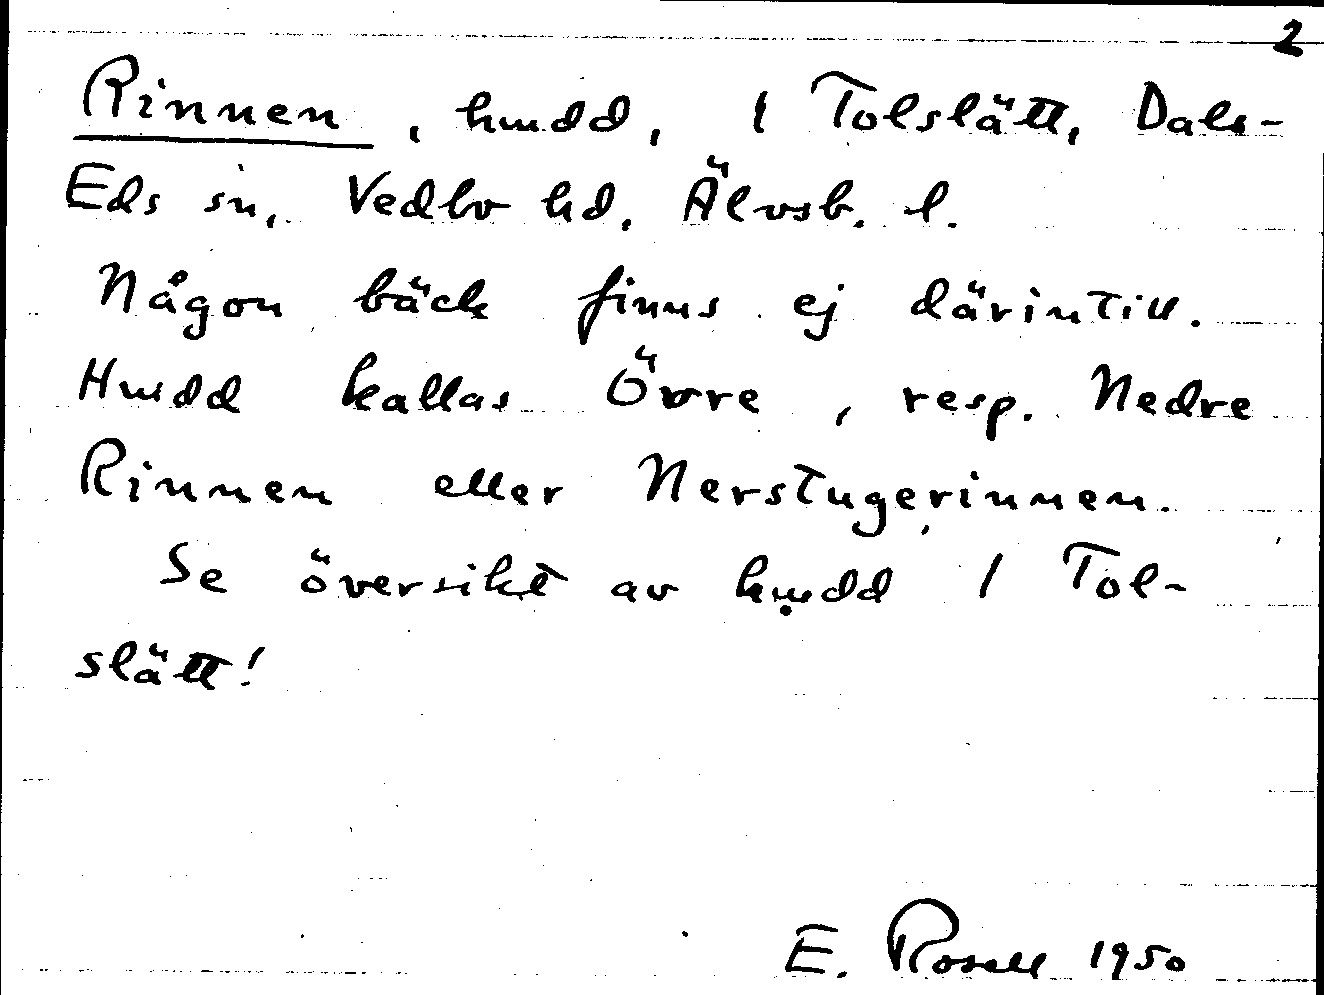 2
Rinnen, hmdd, 1 Tolslätt, Dals-
Eds sn, Vedbo hd, Älvsb. l.
Någon bäck finns ej därintill.
Hmdd kallas Övre, resp. Nedre
Rinnen eller Nerstugerinnen.
Se översikt av hmdd 1 Tol-
slätt!
E. Rosell 1950